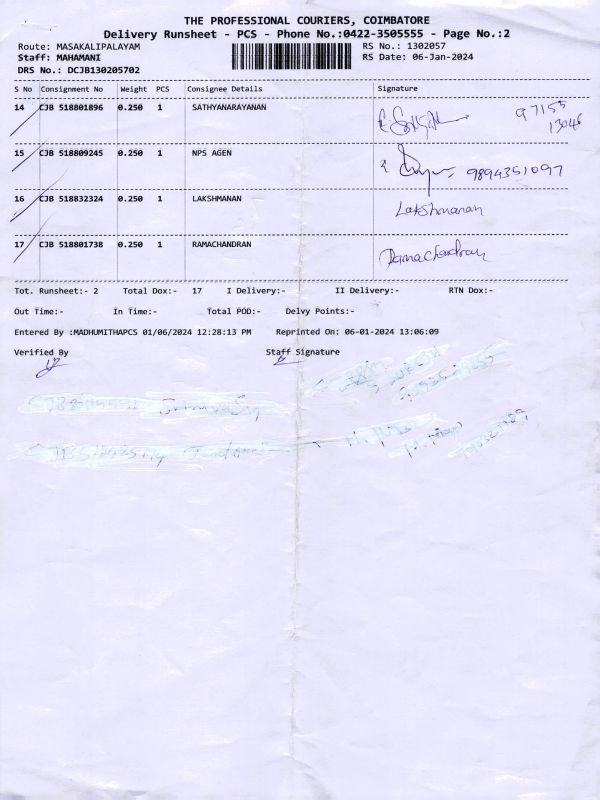 THE PROFESSIONAL COURIERS, COIMBATORE
Delivery Runsheet - PCS - Phone No.:0422-3505555 - Page No.:2
Route: MASAKALIPALAYAM RS No.: 1302057
Staff: MAHAMANI RS Date: 06-Jan-2024
DRS No.: DCJB130205702
S No Consignment No Weight PCS Consignee Details Signature
14 CJB 518801896 0.250 1 SATHYANARAYANAN 97155
13046
15 CJB 518809245 0.250 1 NPS AGEN 9894351097
16 CJB 518832324 0.250 1 LAKSHMANAN Lakshmanan
17 CJB 518801738 0.250 1 RAMACHANDRAN Ramachandran
Tot. Runsheet:- 2 Total Dox:- 17 I Delivery:- II Delivery:- RTN Dox:-
Out Time:- In Time:- Total POD:- Delvy Points:-
Entered By :MADHUMITHAPCS 01/06/2024 12:28:13 PM Reprinted On: 06-01-2024 13:06:09
Verified By Staff Signature